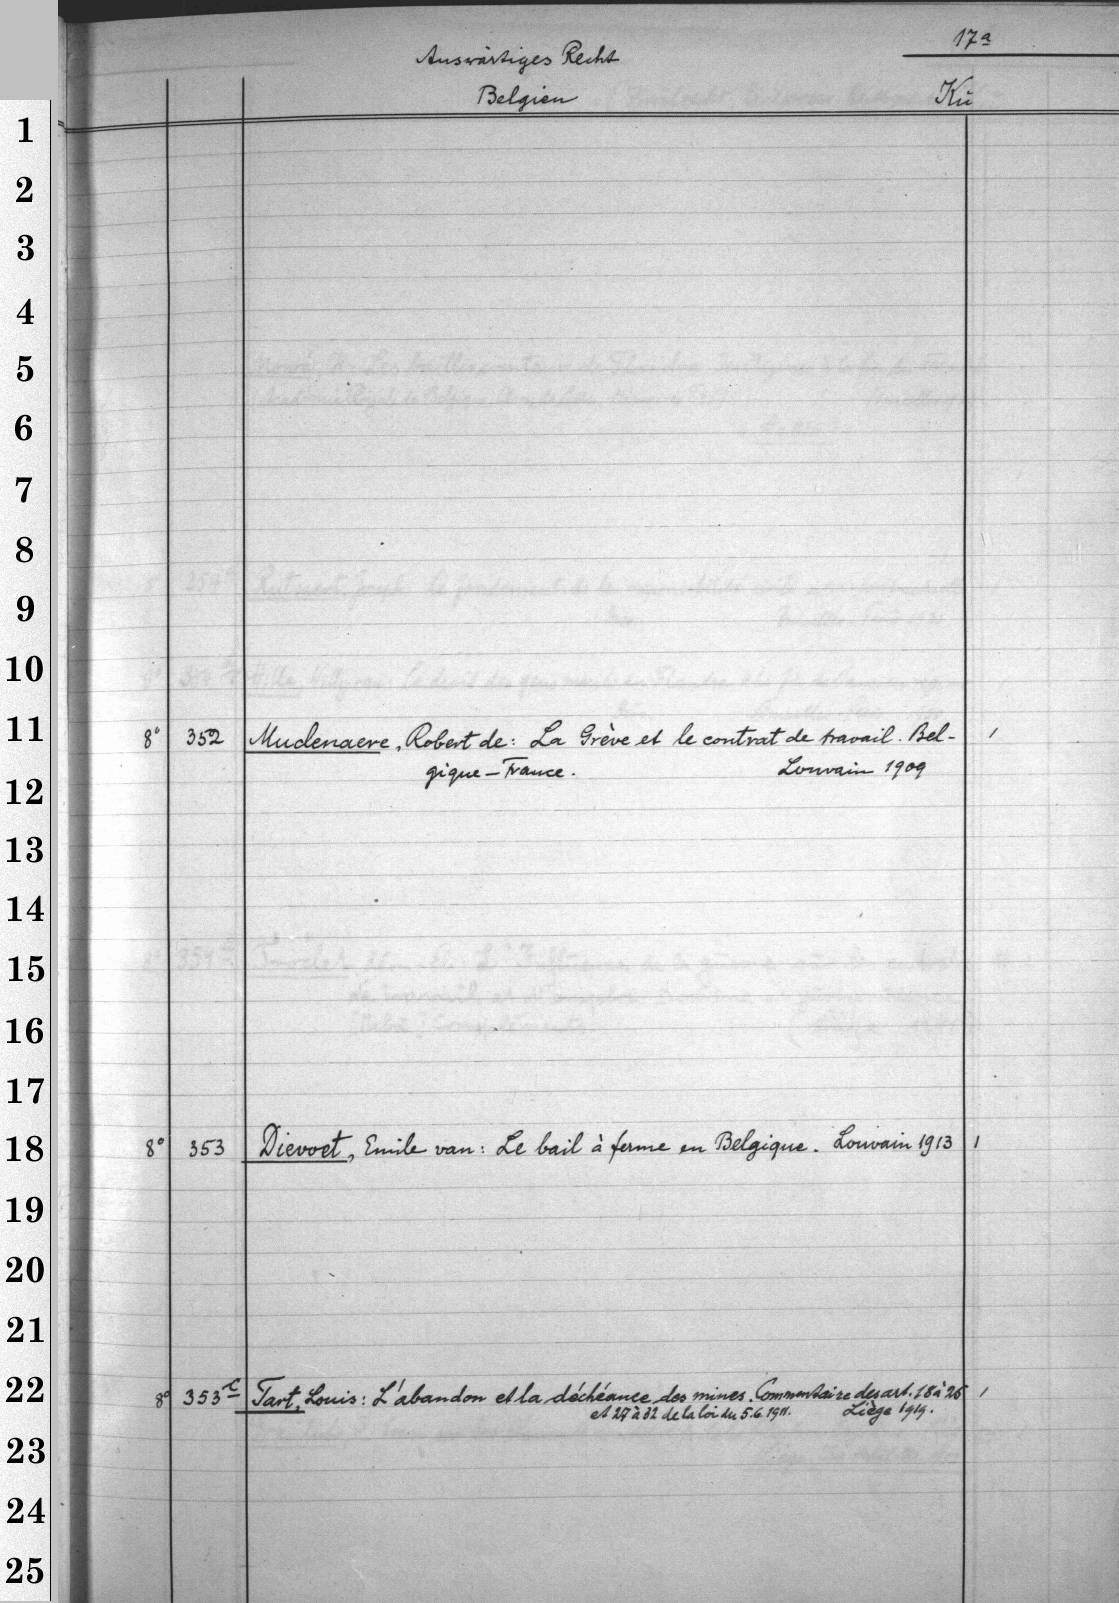 17a
Auswärtiges Recht
Belgien
Kü
1
2
3
4
5
6
7
8
9
10
11
8° 352 Mudenaere, Robert de: La Grève et le contrat de travail. Bel- 1
gique – France. Louvain 1909
12
13
14
15
16
17
18
8° 353 Dievoet, Emile van: Le bail à ferme en Belgique. Louvain 1913 1
19
20
21
22
8° 353c Tart, Louis: L'abandon et la déchéance des mines. Commentaire des art. 18 à 26 1
et 27 à 32 de la loi du 5.6.1911. Liège 1919.
23
24
25